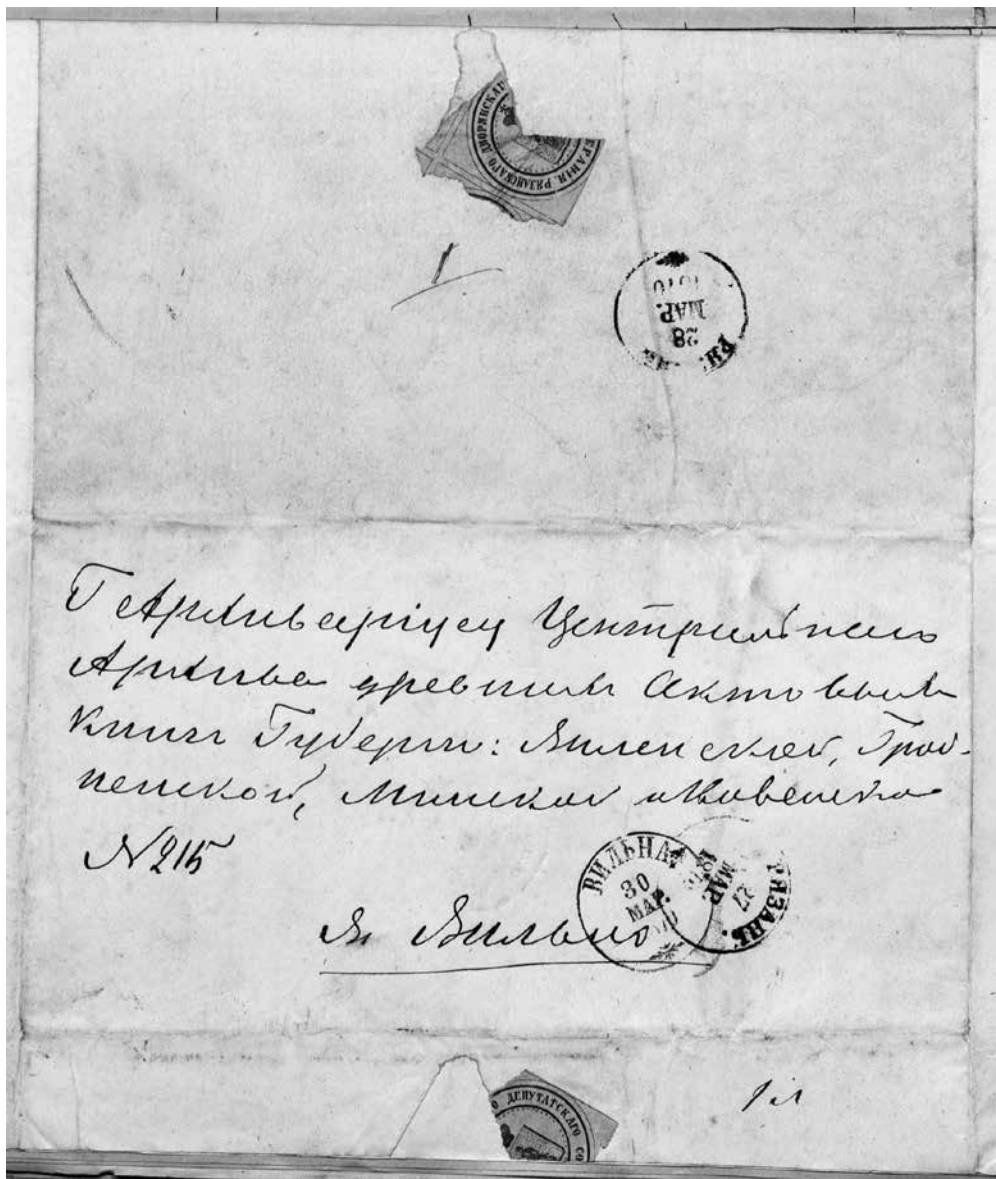 РЯЗАНСКАГО ДВОРЯНСКА
БРАНІЯ
28
МАР.
1870
Г Архиваріусу Центральнаго
Архива древнихъ Актовыхъ
Книгъ Губерн: Виленской, Грод-
ненской, Минской и Ковенской
№ 215
ВИЛЬНА
30
МАР.
РЯЗАНЬ.
27
МАР.
1870
Въ Вильно
ДЕПУТАТСКАГО СО
1 л